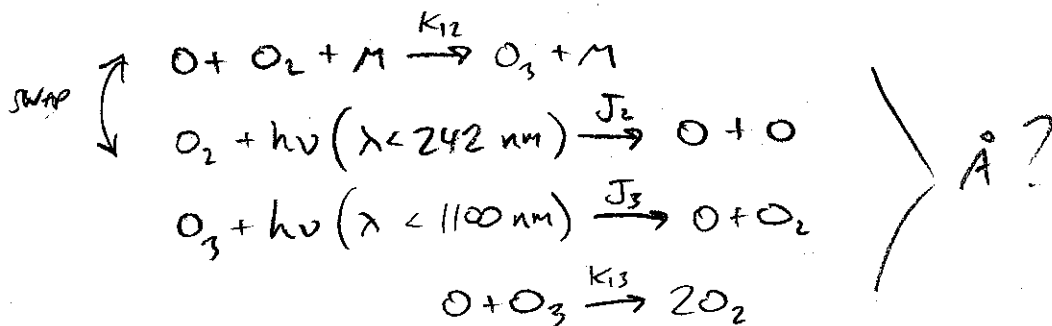 O + O₂ + M —K₁₂→ O₃ + M
SWAP
O₂ + hν (λ < 242 nm) —J₂→ O + O
O₃ + hν (λ < 1100 nm) —J₃→ O + O₂
Å ?
O + O₃ —K₁₃→ 2O₂